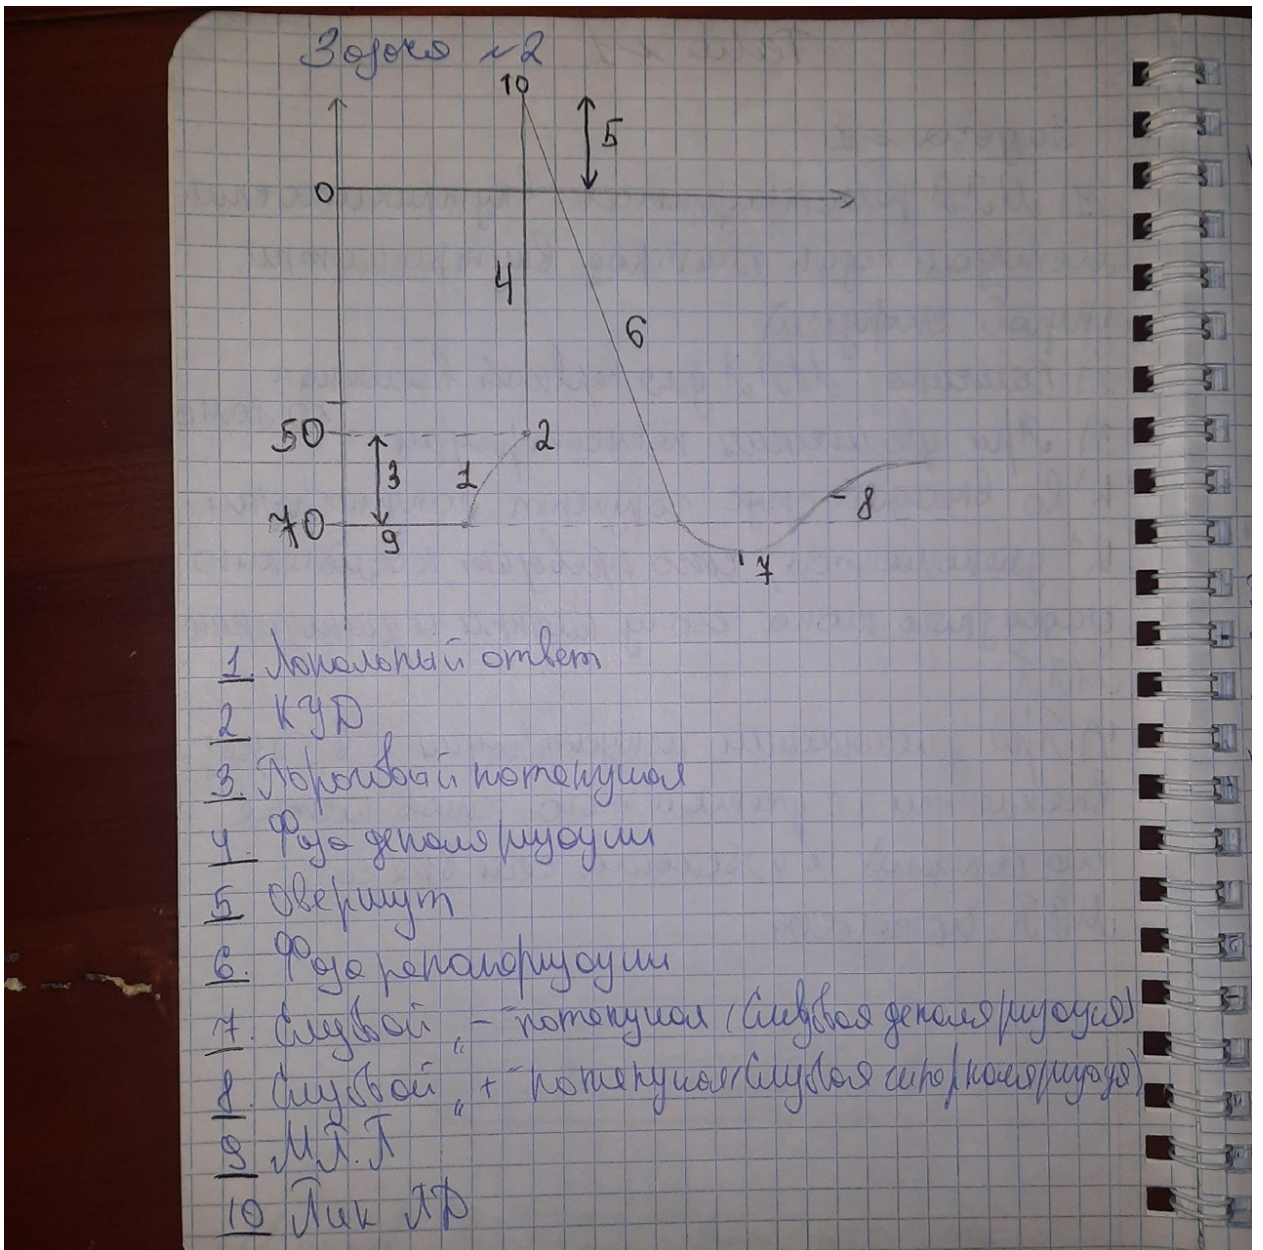 Задача №2
10
5
0
4
6
50
2
3
1
70
9
8
7
1 Локальный ответ
2 КУД
3. Пороговой потенциал
4. Фаза деполяризации
5 Овершут
6. Фаза реполяризации
7. Следовой „-" потенциал (Следовая деполяризация)
8. Следовой „+" потенциал (Следовая гиперполяризация)
9 М.П.П
10 Пик ПД